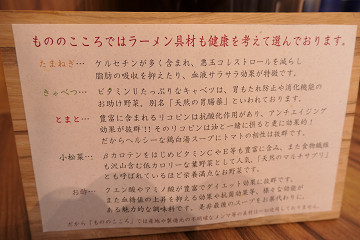 もののこころではラーメン具材も健康を考えて選んでおります。
たまねぎ… ケルセチンが多く含まれ、悪玉コレストロールを減らし
脂肪の吸収を抑えたり、血液サラサラ効果が特徴です。
きゃべつ… ビタミンUたっぷりなキャベツは、胃もたれ防止や消化機能の
お助け野菜。別名「天然の胃腸薬」といわれております。
とまと… 豊富に含まれるリコピンは抗酸化作用があり、アンチエイジング
効果が抜群!!そのリコピンは油と一緒に摂ると更に効果的!
だからヘルシーな鶏白湯スープにトマトの相性は抜群です。
小松菜… βカロテンをはじめビタミンCやE等も豊富に含み、また食物繊維
も沢山含む低カロリーな葉野菜として人気「天然のマルチサプリ」
とも呼ばれているほど栄養満点なお野菜です。
お酢… クエン酸やアミノ酸が豊富でダイエット効果に抜群です。
また血糖値の上昇を抑える効果や抗菌効果等、様々な効能が
ある魅力的な調味料です。是非最後のスープもお酢代わりに。
だから「もののこころ」では